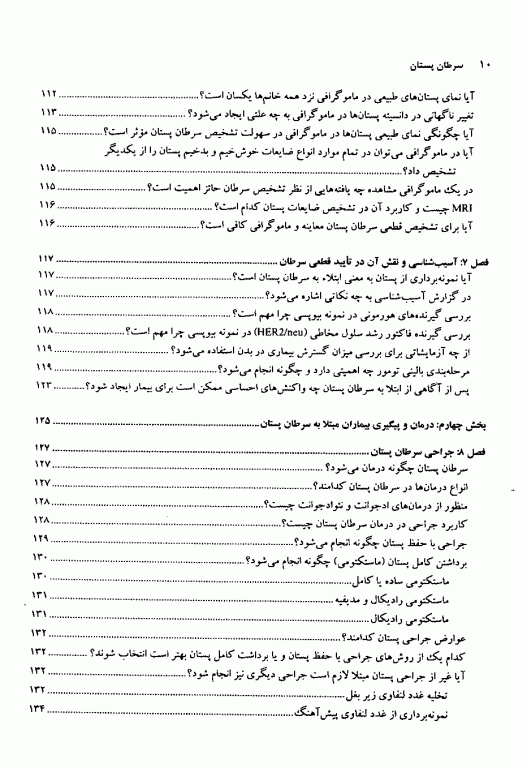 ۱۰ سرطان پستان
آیا نمای پستان‌های طبیعی در ماموگرافی نزد همه خانم‌ها یکسان است؟ ۱۱۲
تغییر ناگهانی در دانسیته پستان‌ها در ماموگرافی به چه علتی ایجاد می‌شود؟ ۱۱۳
آیا چگونگی نمای طبیعی پستان‌ها در ماموگرافی در سهولت تشخیص سرطان پستان مؤثر است؟ ۱۱۵
آیا در ماموگرافی می‌توان در تمام موارد انواع ضایعات خوش‌خیم و بدخیم پستان را از یکدیگر
تشخیص داد؟ ۱۱۵
در یک ماموگرافی مشاهده چه یافته‌هایی از نظر تشخیص سرطان حائز اهمیت است؟ ۱۱۵
MRI چیست و کاربرد آن در تشخیص ضایعات پستان کدام است؟ ۱۱۶
آیا برای تشخیص قطعی سرطان پستان معاینه و ماموگرافی کافی است؟ ۱۱۶
فصل ۷: آسیب‌شناسی و نقش آن در تأیید قطعی سرطان ۱۱۷
آیا نمونه‌برداری از پستان به معنی ابتلاء به سرطان پستان است؟ ۱۱۷
در گزارش آسیب‌شناسی به چه نکاتی اشاره می‌شود؟ ۱۱۷
بررسی گیرنده‌های هورمونی در نمونه بیوپسی چرا مهم است؟ ۱۱۸
بررسی گیرنده فاکتور رشد سلول مخاطی (HER2/neu) در نمونه بیوپسی چرا مهم است؟ ۱۱۸
از چه آزمایشاتی برای بررسی میزان گسترش بیماری در بدن استفاده می‌شود؟ ۱۱۹
مرحله‌بندی بالینی تومور چه اهمیتی دارد و چگونه انجام می‌شود؟ ۱۱۹
پس از آگاهی از ابتلا به سرطان پستان چه واکنش‌های احساسی ممکن است برای بیمار ایجاد شود؟ ۱۲۳
بخش چهارم: درمان و پیگیری بیماران مبتلا به سرطان پستان ۱۲۵
فصل ۸: جراحی سرطان پستان ۱۲۷
سرطان پستان چگونه درمان می‌شود؟ ۱۲۷
انواع درمان‌ها در سرطان پستان کدامند؟ ۱۲۷
منظور از درمان‌های ادجوانت و نئوادجوانت چیست؟ ۱۲۸
کاربرد جراحی در درمان سرطان پستان چیست؟ ۱۲۸
جراحی با حفظ پستان چگونه انجام می‌شود؟ ۱۲۹
برداشتن کامل پستان (ماستکتومی) چگونه انجام می‌شود؟ ۱۳۰
ماستکتومی ساده یا کامل ۱۳۰
ماستکتومی رادیکال و مدیفیه ۱۳۱
ماستکتومی رادیکال ۱۳۱
عوارض جراحی پستان کدامند؟ ۱۳۲
کدام یک از روش‌های جراحی با حفظ پستان و یا برداشت کامل پستان بهتر است انتخاب شوند؟ ۱۳۲
آیا غیر از جراحی پستان مبتلا لازم است جراحی دیگری نیز انجام شود؟ ۱۳۲
تخلیه غدد لنفاوی زیر بغل ۱۳۲
نمونه‌برداری از غدد لنفاوی پیش‌آهنگ ۱۳۴